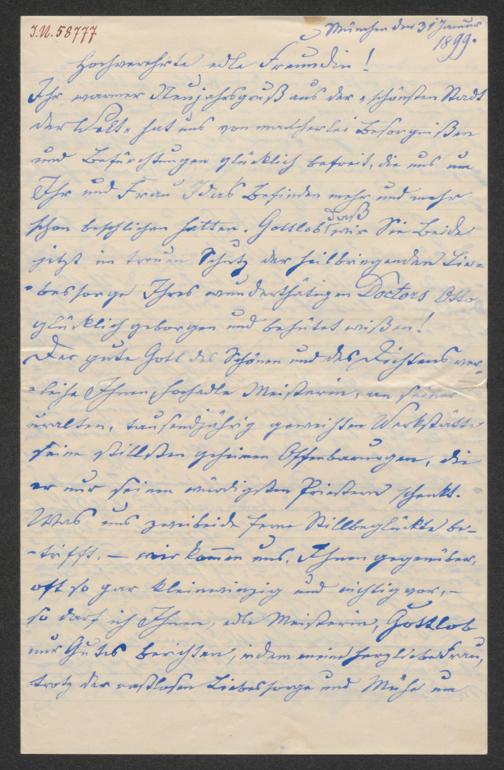 J.N. 58777
München den 31 Januar
1899.
Hochverehrte edle Freundin!
Ihr warmer Neujahrsgruß aus der „schönsten Stadt
der Welt“ hat uns von mancherlei Besorgnißen
und Befürchtungen glücklich befreit, die uns um
Ihr und Frau Ida's Befinden mehr und mehr
schon beschlichen hatten. Gottlob daß wir Sie beide
jetzt im treuen Schutz der heilbringenden Lie-
-bessorge Ihres wunderthätigen Doctors Otto
glücklich geborgen und behütet wißen!
Der gute Gott des Schönen und des Dichtens ver-
-leihe Ihnen, hochedle Meisterin, an seiner
uralten, tausendjährig geweihten Werkstätte
seine stillsten geheimen Offenbarungen, die
er nur seinen würdigsten Priestern schenkt.
Was uns zweibeide ferne Stillbeglückte be-
-trifft, – wir kommen uns, Ihnen gegenüber,
oft so gar kleinwinzig und nichtig vor, –
so darf ich Ihnen, edle Meisterin, Gottlob
nur Gutes berichten, indem meine herzliebe Frau,
trotz der rastlosen Liebessorge und Mühe um